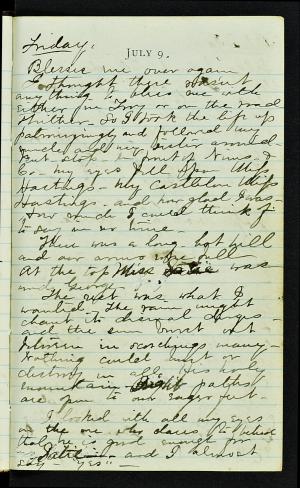 Friday.
JULY 9.
Blesses me over again
I thought there wasn't
anything to bless me with
either in Troy or on the road
thither - So I took the life up
palmingly and followed my
uncle and my sister around -
But stop in front of Nims &
Co - my eyes fell upon the
Hastings - My Castleton
Hastings - and how glad I was -
How much I could think of
to say in an hour.
There was a long hot hill
and our
At the top Miss was
and George.
The rest was what I
wanted. The rain might
chant its dismal dirges -
and the sun must not
in scorchings many -
Nothing could hurt or
destroy in all His holy
mountain - paths
are open to our eager feet -
I looked with all my eyes
on the one who dares to believe
that he is good enough for
my and I almost
say - "yes" -